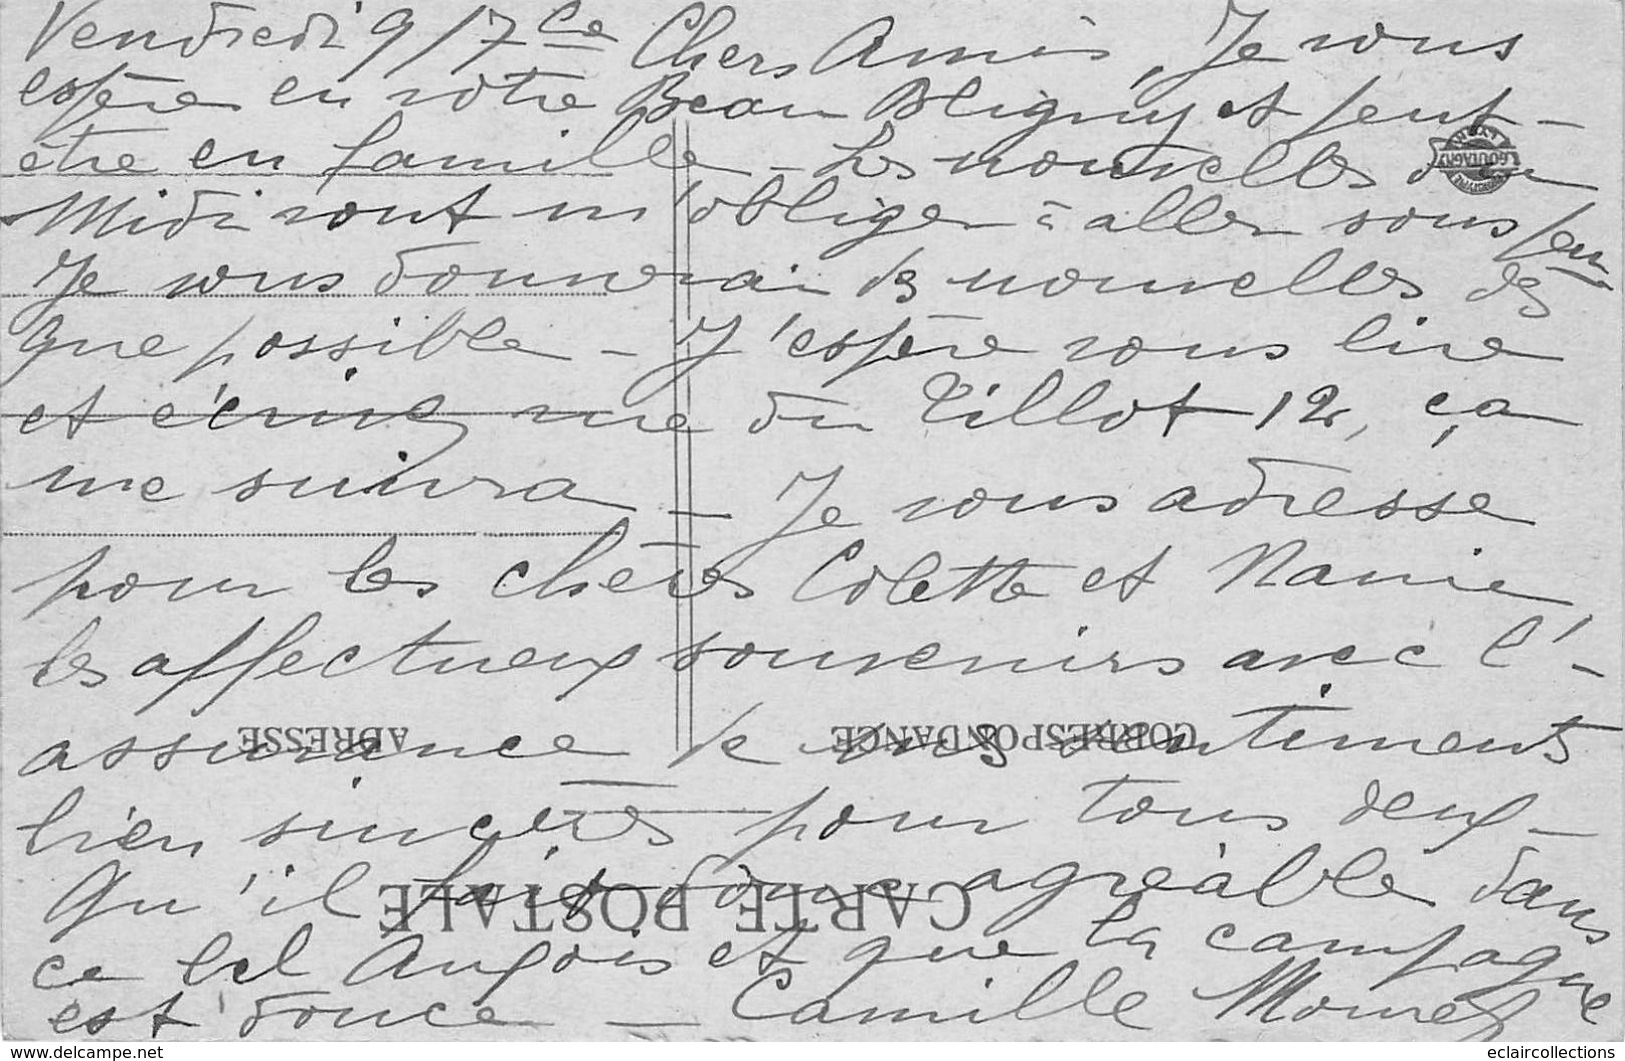 Vendredi 9/7bre Chers Amis, Je vous
espère en votre Beau Bligny et peut-
être en famille - Les nouvelles du
Midi vont m'obliger à aller sous peu
Je vous donnerai des nouvelles dès
que possible - J'espère vous lire
et écrivez rue du Tillot 12, ça
me suivra - Je vous adresse
pour les chères Colette et Nanie,
les affectueux souvenirs avec l'-
assurance de mes sentiments
bien sincères pour tous deux -
Qu'il fait donc agréable dans
ce bel Auxois et que la campagne
est douce - Camille
CORRESPONDANCE
ADRESSE
CARTE POSTALE
GOUTAGNY
www.delcampe.net
eclaircollections